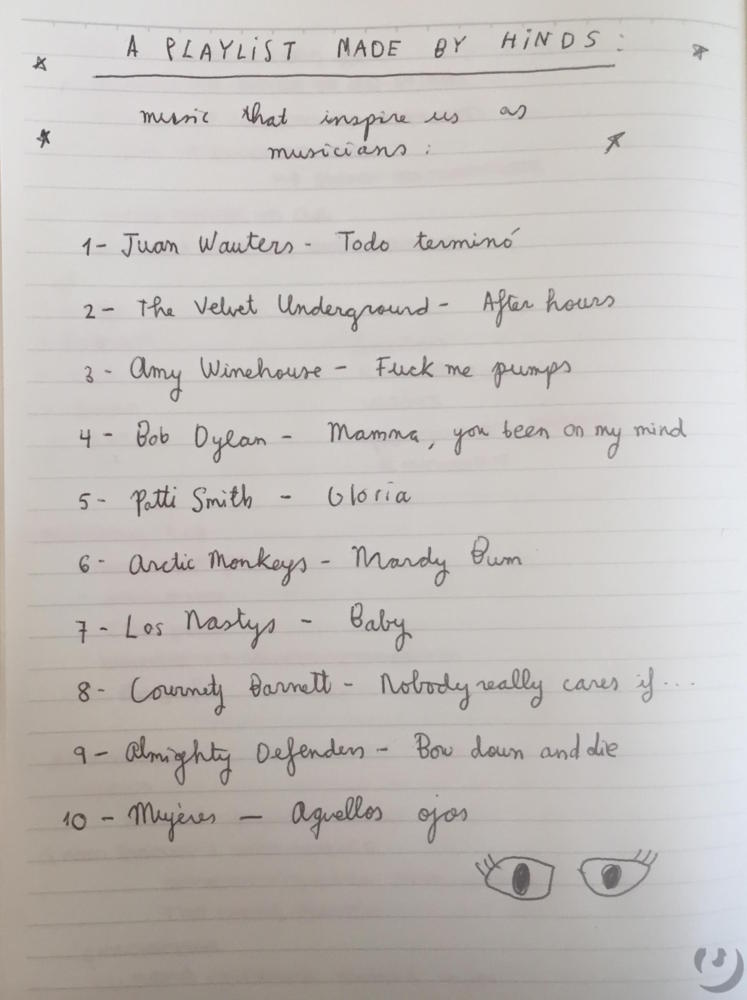 A PLAYLIST MADE BY HINDS:
music that inspire us as
musicians:
1- Juan Wauters - Todo terminó
2- The Velvet Underground - After hours
3- Amy Winehouse - Fuck me pumps
4- Bob Dylan - Mamma, you been on my mind
5- Patti Smith - Gloria
6- Arctic Monkeys - Mardy Bum
7- Los Nastys - Baby
8- Cournety Barnett - Nobody really cares if...
9- Almighty Defenders - Bow down and die
10- Mujeres - Aquellos ojos